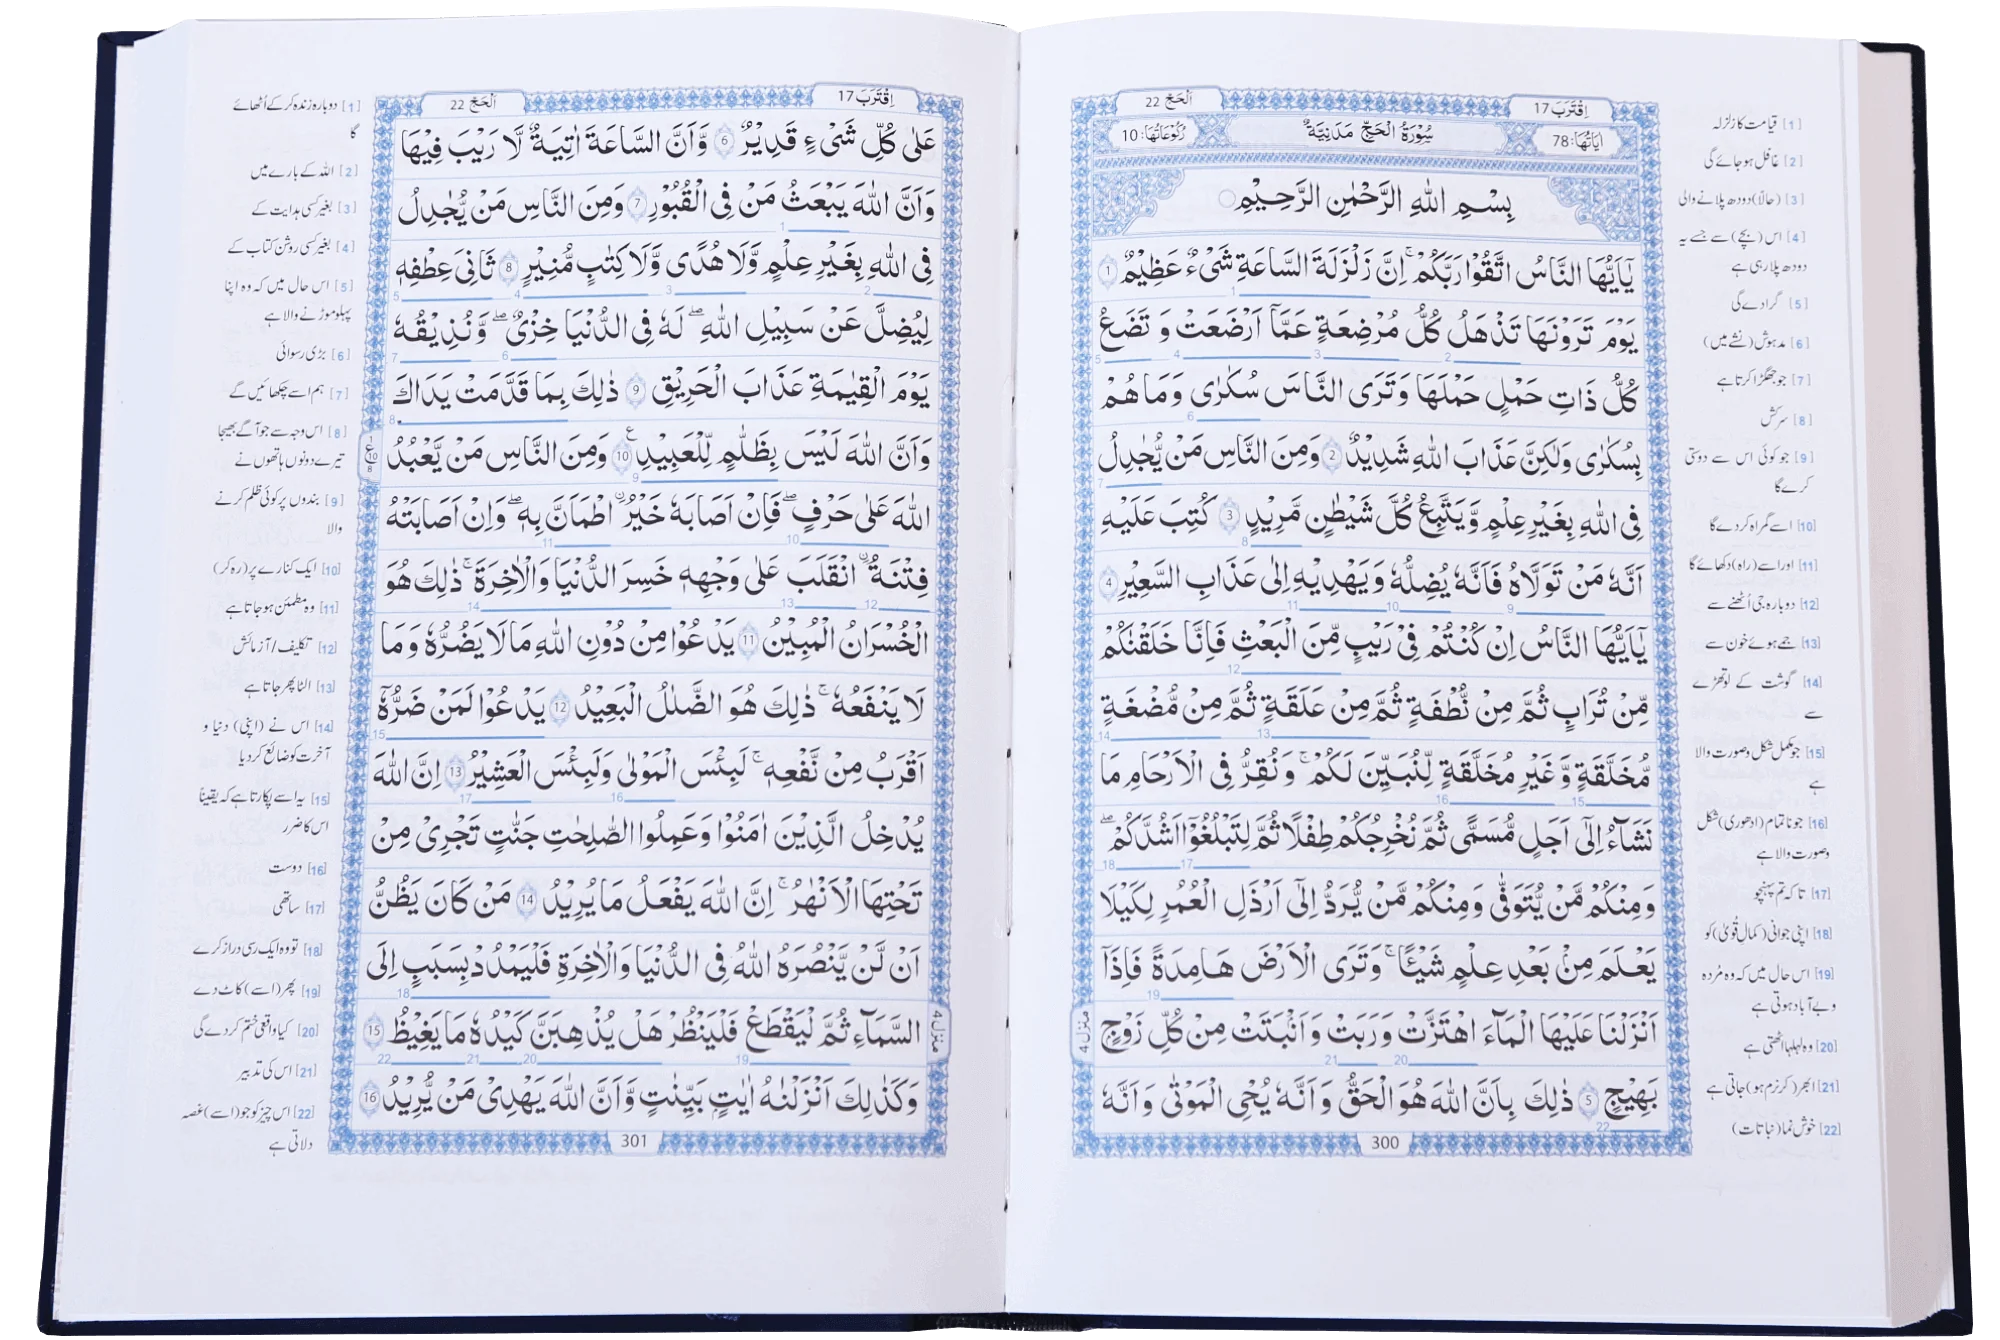 اِقْتَرَبَ 17
اَلْحَجّ 22
اٰيَاتُهَا: 78
سُوْرَةُ الْحَجِّ مَدَنِيَّةٌ
رُكُوْعَاتُهَا: 10
بِسْمِ اللّٰهِ الرَّحْمٰنِ الرَّحِيْمِ
يٰۤاَيُّهَا النَّاسُ اتَّقُوْا رَبَّكُمْ ۚ اِنَّ زَلْزَلَةَ السَّاعَةِ شَيْءٌ عَظِيْمٌ 1
يَوْمَ تَرَوْنَهَا تَذْهَلُ كُلُّ مُرْضِعَةٍ عَمَّاۤ اَرْضَعَتْ وَ تَضَعُ
كُلُّ ذَاتِ حَمْلٍ حَمْلَهَا وَتَرَى النَّاسَ سُكٰرٰى وَمَا هُمْ
بِسُكٰرٰى وَلٰكِنَّ عَذَابَ اللّٰهِ شَدِيْدٌ 2 وَمِنَ النَّاسِ مَنْ يُّجَادِلُ
فِى اللّٰهِ بِغَيْرِ عِلْمٍ وَّيَتَّبِعُ كُلَّ شَيْطٰنٍ مَّرِيْدٍ 3 كُتِبَ عَلَيْهِ
اَنَّهٗ مَنْ تَوَلَّاهُ فَاَنَّهٗ يُضِلُّهٗ وَيَهْدِيْهِ اِلٰى عَذَابِ السَّعِيْرِ 4
يٰۤاَيُّهَا النَّاسُ اِنْ كُنْتُمْ فِيْ رَيْبٍ مِّنَ الْبَعْثِ فَاِنَّا خَلَقْنٰكُمْ
مِّنْ تُرَابٍ ثُمَّ مِنْ نُّطْفَةٍ ثُمَّ مِنْ عَلَقَةٍ ثُمَّ مِنْ مُّضْغَةٍ
مُّخَلَّقَةٍ وَّغَيْرِ مُخَلَّقَةٍ لِّنُبَيِّنَ لَكُمْ ۚ وَنُقِرُّ فِى الْاَرْحَامِ مَا
نَشَآءُ اِلٰۤى اَجَلٍ مُّسَمًّى ثُمَّ نُخْرِجُكُمْ طِفْلًا ثُمَّ لِتَبْلُغُوْۤا اَشُدَّكُمْ ۖ
وَمِنْكُمْ مَّنْ يُّتَوَفّٰى وَمِنْكُمْ مَّنْ يُّرَدُّ اِلٰۤى اَرْذَلِ الْعُمُرِ لِكَيْلَا
يَعْلَمَ مِنْۢ بَعْدِ عِلْمٍ شَيْئًا ۚ وَتَرَى الْاَرْضَ هَامِدَةً فَاِذَاۤ
اَنْزَلْنَا عَلَيْهَا الْمَآءَ اهْتَزَّتْ وَرَبَتْ وَاَنْۢبَتَتْ مِنْ كُلِّ زَوْجٍۭ
بَهِيْجٍ 5 ذٰلِكَ بِاَنَّ اللّٰهَ هُوَ الْحَقُّ وَاَنَّهٗ يُحْيِ الْمَوْتٰى وَاَنَّهٗ
منزل 4
300
[1] قیامت کا زلزلہ
[2] غافل ہو جائے گی
[3] (حالاً) دودھ پلانے والی
[4] اس (بچے) سے جسے یہ
دودھ پلا رہی ہے
[5] گرا دے گی
[6] مدہوش (نشے میں)
[7] جو جھگڑا کرتا ہے
[8] سرکش
[9] جو کوئی اس سے دوستی
کرے گا
[10] اسے گمراہ کر دے گا
[11] اور اسے (راہ) دکھائے گا
[12] دوبارہ جی اُٹھنے سے
[13] جمے ہوئے خون سے
[14] گوشت کے لوتھڑے
سے
[15] جو مکمل شکل و صورت والا
ہے
[16] جو ناتمام (ادھوری) شکل
و صورت والا ہے
[17] تا کہ تم پہنچو
[18] اپنی جوانی (کمالِ قُویٰ) کو
[19] اس حال میں کہ وہ مُردہ
و بے آباد ہوتی ہے
[20] وہ لہلہا اٹھتی ہے
[21] ابھر (کر نرم ہو) جاتی ہے
[22] خوش نما (نباتات)
اِقْتَرَبَ 17
اَلْحَجّ 22
عَلٰى كُلِّ شَيْءٍ قَدِيْرٌ 6 وَّاَنَّ السَّاعَةَ اٰتِيَةٌ لَّا رَيْبَ فِيْهَا
وَاَنَّ اللّٰهَ يَبْعَثُ مَنْ فِى الْقُبُوْرِ 7 وَمِنَ النَّاسِ مَنْ يُّجَادِلُ
فِى اللّٰهِ بِغَيْرِ عِلْمٍ وَّلَا هُدًى وَّلَا كِتٰبٍ مُّنِيْرٍ 8 ثَانِيَ عِطْفِهٖ
لِيُضِلَّ عَنْ سَبِيْلِ اللّٰهِ ۖ لَهٗ فِى الدُّنْيَا خِزْيٌ ۖ وَّنُذِيْقُهٗ
يَوْمَ الْقِيٰمَةِ عَذَابَ الْحَرِيْقِ 9 ذٰلِكَ بِمَا قَدَّمَتْ يَدَاكَ
وَاَنَّ اللّٰهَ لَيْسَ بِظَلَّامٍ لِّلْعَبِيْدِ 10 وَمِنَ النَّاسِ مَنْ يَّعْبُدُ
اللّٰهَ عَلٰى حَرْفٍ ۖ فَاِنْ اَصَابَهٗ خَيْرُ ۨاطْمَاَنَّ بِهٖ ۖ وَاِنْ اَصَابَتْهُ
فِتْنَةُ ۨانْقَلَبَ عَلٰى وَجْهِهٖ خَسِرَ الدُّنْيَا وَالْاٰخِرَةَ ۚ ذٰلِكَ هُوَ
الْخُسْرَانُ الْمُبِيْنُ 11 يَدْعُوْا مِنْ دُوْنِ اللّٰهِ مَا لَا يَضُرُّهٗ وَمَا
لَا يَنْفَعُهٗ ۚ ذٰلِكَ هُوَ الضَّلٰلُ الْبَعِيْدُ 12 يَدْعُوْا لَمَنْ ضَرُّهٗۤ
اَقْرَبُ مِنْ نَّفْعِهٖ ۚ لَبِئْسَ الْمَوْلٰى وَلَبِئْسَ الْعَشِيْرُ 13 اِنَّ اللّٰهَ
يُدْخِلُ الَّذِيْنَ اٰمَنُوْا وَعَمِلُوا الصّٰلِحٰتِ جَنّٰتٍ تَجْرِيْ مِنْ
تَحْتِهَا الْاَنْهٰرُ ۚ اِنَّ اللّٰهَ يَفْعَلُ مَا يُرِيْدُ 14 مَنْ كَانَ يَظُنُّ
اَنْ لَّنْ يَّنْصُرَهُ اللّٰهُ فِى الدُّنْيَا وَالْاٰخِرَةِ فَلْيَمْدُدْ بِسَبَبٍ اِلَى
السَّمَآءِ ثُمَّ لْيَقْطَعْ فَلْيَنْظُرْ هَلْ يُذْهِبَنَّ كَيْدُهٗ مَا يَغِيْظُ 15
وَكَذٰلِكَ اَنْزَلْنٰهُ اٰيٰتٍۭ بَيِّنٰتٍ وَّاَنَّ اللّٰهَ يَهْدِيْ مَنْ يُّرِيْدُ 16
منزل 4
301
[1] دوبارہ زندہ کر کے اُٹھائے
گا
[2] اللہ کے بارے میں
[3] بغیر کسی ہدایت کے
[4] بغیر کسی روشن کتاب کے
[5] اس حال میں کہ وہ اپنا
پہلو موڑنے والا ہے
[6] بڑی رسوائی
[7] ہم اسے چکھائیں گے
[8] اس وجہ سے جو آگے بھیجا
تیرے دونوں ہاتھوں نے
[9] بندوں پر کوئی ظلم کرنے
والا
[10] ایک کنارے پر (رہ کر)
[11] وہ مطمئن ہو جاتا ہے
[12] تکلیف/آزمائش
[13] الٹا پھر جاتا ہے
[14] اس نے (اپنی) دنیا و
آخرت کو ضائع کر دیا
[15] یہ اسے پکارتا ہے کہ یقیناً
اس کا ضرر
[16] دوست
[17] ساتھی
[18] تو وہ ایک رسی دراز کرے
[19] پھر (اسے) کاٹ دے
[20] کیا واقعی ختم کر دے گی
[21] اس کی تدبیر
[22] اس چیز کو جو (اسے) غصہ
دلاتی ہے